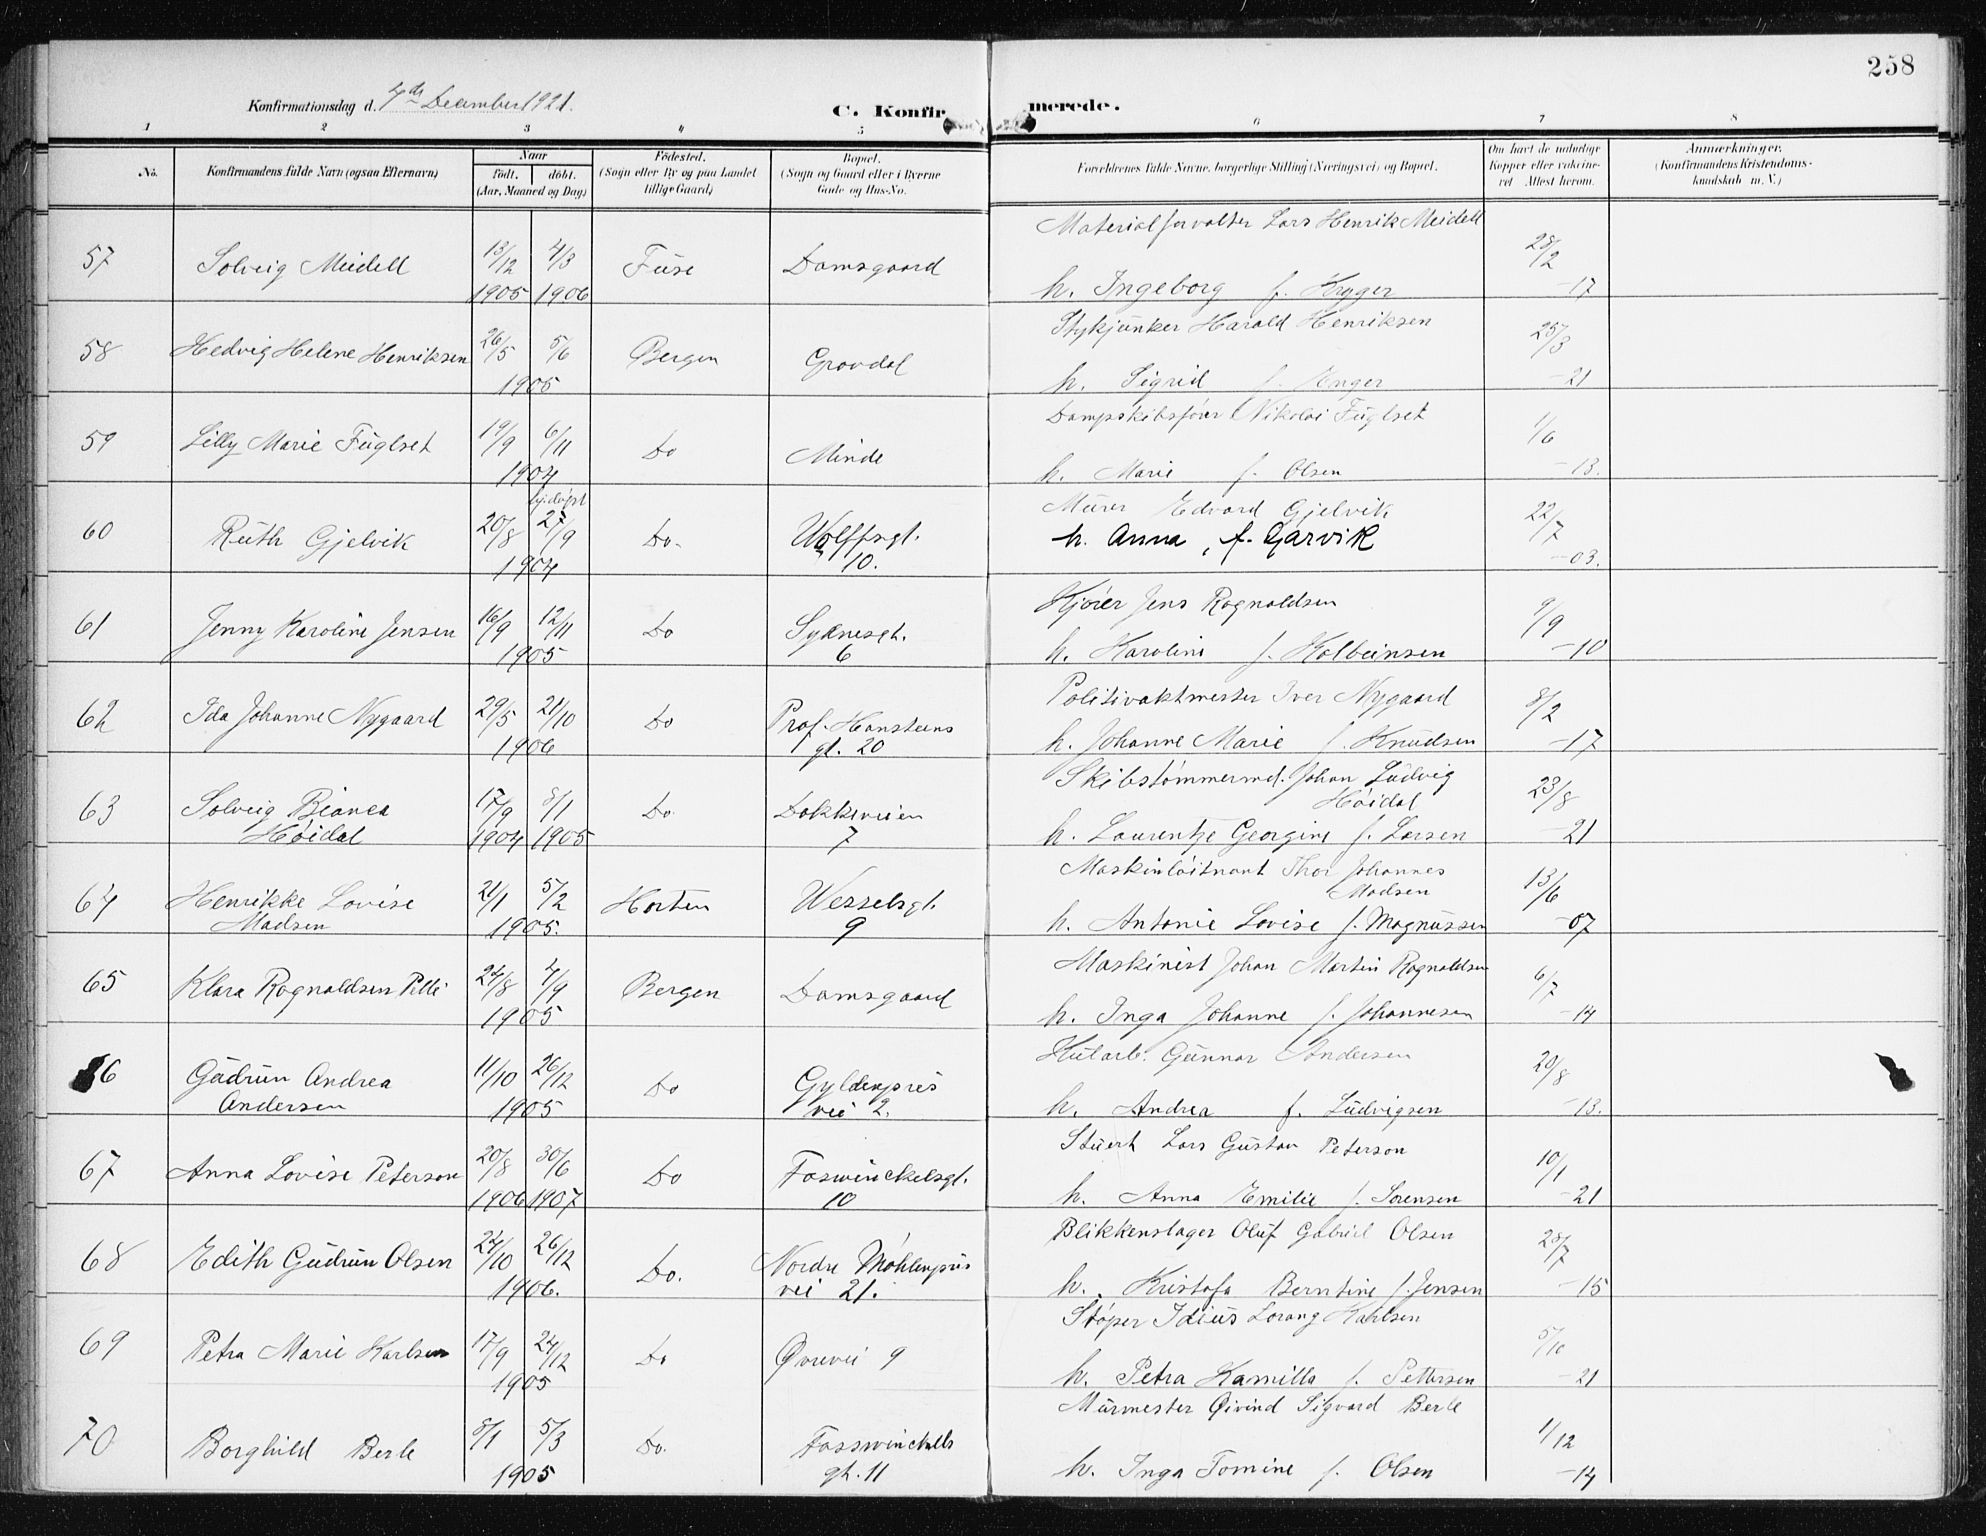 258
Konfirmationsdag d. 4de December 1921.
C. Konfirmerede.
1 2 3 4 5 6 7 8
No.
Konfirmandens fulde Navn (ogsaa Efternavn)
Naar
født. døbt.
(Aar, Maaned og Dag)
Fødested.
(Sogn eller By og paa Landet
tillige Gaard)
Bopæl.
(Sogn og Gaard eller i Byerne
Gade og Hus-No.
Forældrenes fulde Navne, borgerlige Stilling (Næringsvei) og Bopæl.
Om havt de naturlige
Kopper eller vakcine-
ret Attest herom.
Anmærkninger.
(Konfirmandens Kristendoms-
kundskab m. V.)
Materialforvalter Lars Henrik Meidell
57 Solveig Meidell 13/12 4/3 Fuse Damsgaard 28/2
1905 1906 h. Ingeborg f. Kryger -17
Stykjunker Harald Henriksen
58 Hedvig Helene Henriksen 26/5 5/6 Bergen Gravdal 25/3
1905 h. Sigrid f. Enger -21
Dampskibsfører Nikolai Fuglset
59 Lilly Marie Fuglset 19/9 6/11 Do Minde 1/6
1904 h. Marie f. Olsen -13.
hjdøpt Murer Edvard Gjelvik
60 Ruth Gjelvik 20/8 27/9 Do. Wolffsgt. 22/7
h. Anna, f. Garvik
1904 10. -03.
Kjører Jens Ragnaldsen
61 Jenny Karoline Jensen 16/9 12/11 Do Sydnesgt. 9/9
1905 6 h. Karoline f. Kolbeinsen -10
Politivaktmester Iver Nygaard
62 Ida Johanne Nygaard 29/5 21/10 Do Prof. Hansteens 8/2
1906 gt. 20 h. Johanne Marie f. Knudsen -17
Skibstømmermd. Johan Ludvig
Høidal
63 Solveig Bianca 17/9 8/1 Do. Dokkeveien 23/8
Høidal 1904 1905 7 h. Laurentze Georgine f. Larsen -21
Maskinløitnant Thor Johannes
Madsen
64 Henrikke Lovise 21/1 5/2 Horten Wesselsgt. 13/6
Madsen 1905. 9 h. Antonie Lovise f. Magnussen -07
Maskinist Johan Martin Ragnaldsen
65 Klara Ragnaldsen Pelle 24/8 4/9 Bergen Damsgaard 6/7
1905 h. Inga Johanne f. Johannesen -14
Hutarb. Gunnar Andersen
66 Gudrun Andrea 11/10 26/12 Do Gyldenpris 20/8
Andersen 1905 vei 2. h. Andrea f. Ludvigsen -13.
Stuert Lars Gustav Peterson
67 Anna Lovise Peterson 20/8 30/6 Do Foswinckelsgt. 10/1
1906 1907 10 h. Anna Emilie f. Sorensen -21
Blikkenslager Oluf Gabriel Olsen
68 Edith Gudrun Olsen 24/10 26/12 Do. Nordre Møhlenpris 28/7
1906. vei 21. h. Kristofa Berntine f. Jensen -15
Støper Idius Lorang Karlsen
69 Petra Marie Karlsen 17/9 24/12 Do Øvrevei 9 5/10
1905 h. Petra Kamilla f. Pettersen -21
Murmester Øivind Sigvard Berle
70 Borghild Berle 8/1 5/3 Do. Fosswinckells 1/12
1905 gt. 11 h. Inga Tomine f. Olsen -14